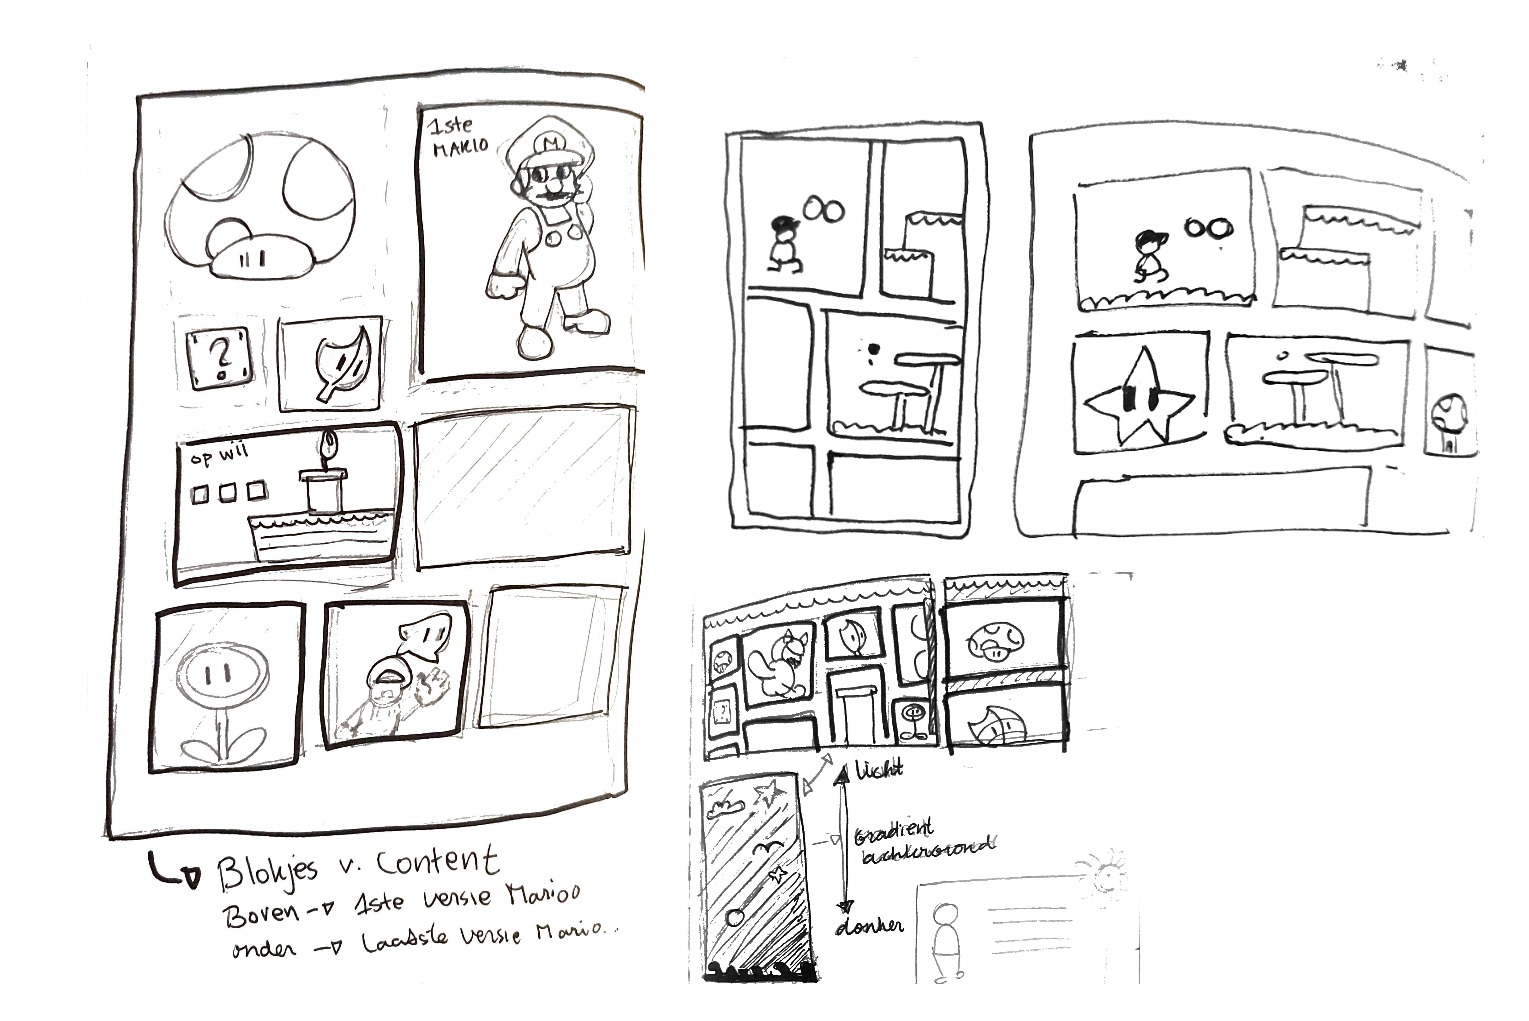 1ste
MARIO
M
?
op wii
Blokjes v. Content
Boven → 1ste versie Marioo
onder → Laatste versie Mario..
licht
Gradient
background
donker